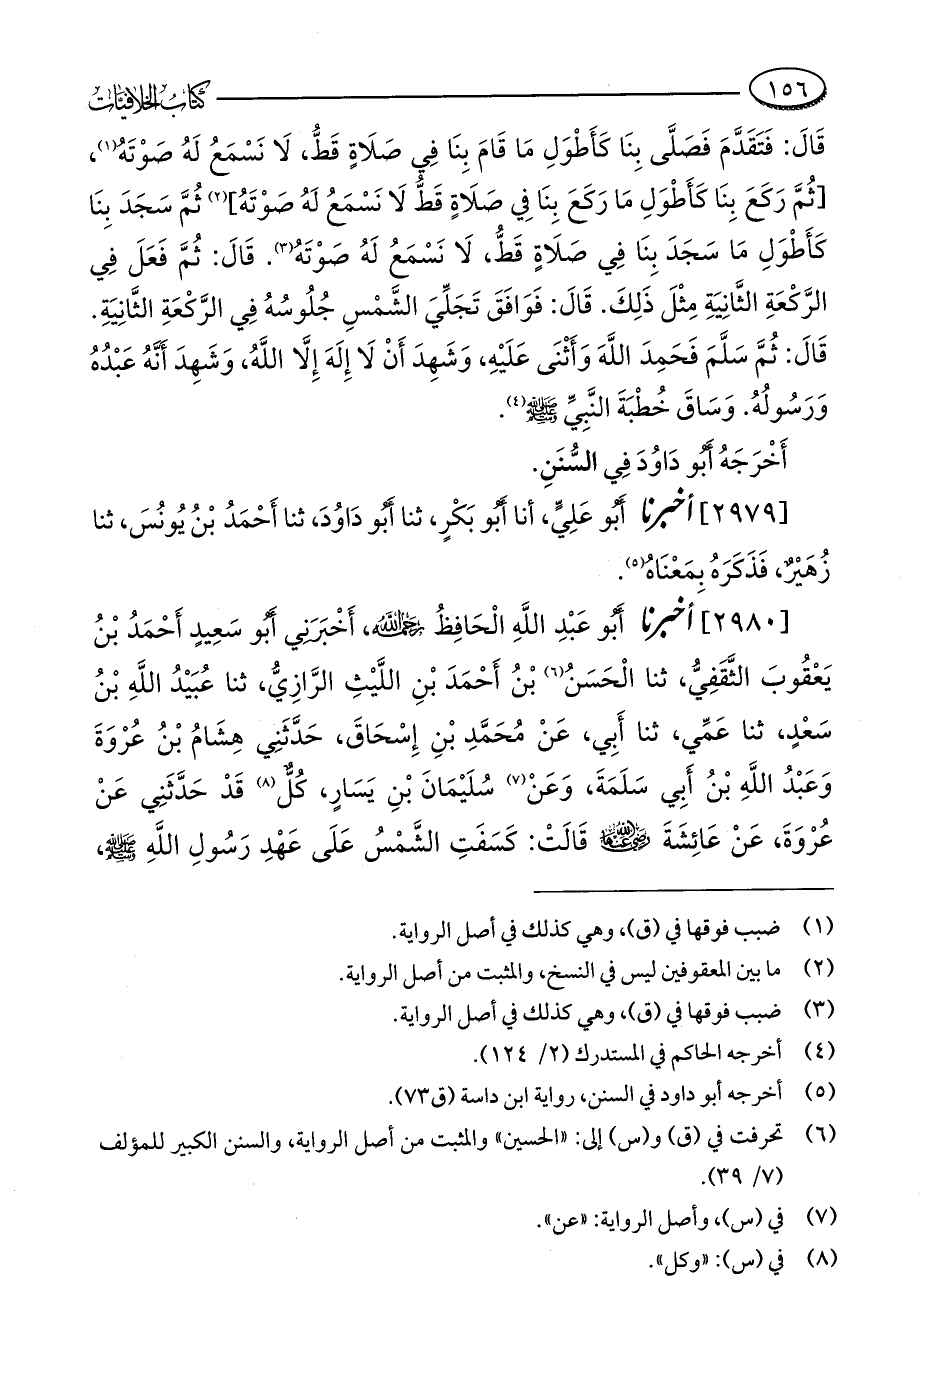 ١٥٦ كتاب الخلافيات
قَالَ: فَتَقَدَّمَ فَصَلَّى بِنَا كَأَطْوَلِ مَا قَامَ بِنَا فِي صَلَاةٍ قَطُّ، لَا نَسْمَعُ لَهُ صَوْتَهُ(١)،
[ثُمَّ رَكَعَ بِنَا كَأَطْوَلِ مَا رَكَعَ بِنَا فِي صَلَاةٍ قَطُّ لَا نَسْمَعُ لَهُ صَوْتَهُ](٢) ثُمَّ سَجَدَ بِنَا
كَأَطْوَلِ مَا سَجَدَ بِنَا فِي صَلَاةٍ قَطُّ، لَا نَسْمَعُ لَهُ صَوْتَهُ(٣). قَالَ: ثُمَّ فَعَلَ فِي
الرَّكْعَةِ الثَّانِيَةِ مِثْلَ ذَلِكَ. قَالَ: فَوَافَقَ تَجَلِّيَ الشَّمْسِ جُلُوسُهُ فِي الرَّكْعَةِ الثَّانِيَةِ.
قَالَ: ثُمَّ سَلَّمَ فَحَمِدَ اللَّهَ وَأَثْنَى عَلَيْهِ، وَشَهِدَ أَنْ لَا إِلَهَ إِلَّا اللَّهُ، وَشَهِدَ أَنَّهُ عَبْدُهُ
وَرَسُولُهُ. وَسَاقَ خُطْبَةَ النَّبِيِّ ﷺ(٤).
أَخْرَجَهُ أَبُو دَاوُدَ فِي السُّنَنِ.
[٢٩٧٩] أخبرنا أَبُو عَلِيٍّ، أنا أَبُو بَكْرٍ، ثنا أَبُو دَاوُدَ، ثنا أَحْمَدُ بْنُ يُونُسَ، ثنا
زُهَيْرٌ، فَذَكَرَهُ بِمَعْنَاهُ(٥).
[٢٩٨٠] أخبرنا أَبُو عَبْدِ اللَّهِ الْحَافِظُ رحمه الله، أَخْبَرَنِي أَبُو سَعِيدٍ أَحْمَدُ بْنُ
يَعْقُوبَ الثَّقَفِيُّ، ثنا الْحَسَنُ(٦) بْنُ أَحْمَدَ بْنِ اللَّيْثِ الرَّازِيُّ، ثنا عُبَيْدُ اللَّهِ بْنُ
سَعْدٍ، ثنا عَمِّي، ثنا أَبِي، عَنْ مُحَمَّدِ بْنِ إِسْحَاقَ، حَدَّثَنِي هِشَامُ بْنُ عُرْوَةَ
وَعَبْدُ اللَّهِ بْنُ أَبِي سَلَمَةَ، وَعَنْ(٧) سُلَيْمَانَ بْنِ يَسَارٍ، كُلٌّ(٨) قَدْ حَدَّثَنِي عَنْ
عُرْوَةَ، عَنْ عَائِشَةَ رضي الله عنها قَالَتْ: كَسَفَتِ الشَّمْسُ عَلَى عَهْدِ رَسُولِ اللَّهِ ﷺ،
(١) ضبب فوقها في (ق)، وهي كذلك في أصل الرواية.
(٢) ما بين المعقوفين ليس في النسخ، والمثبت من أصل الرواية.
(٣) ضبب فوقها في (ق)، وهي كذلك في أصل الرواية.
(٤) أخرجه الحاكم في المستدرك (٢/ ١٢٤).
(٥) أخرجه أبو داود في السنن، رواية ابن داسة (ق٧٣).
(٦) تحرفت في (ق) و(س) إلى: «الحسين» والمثبت من أصل الرواية، والسنن الكبير للمؤلف
(٧/ ٣٩).
(٧) في (س)، وأصل الرواية: «عن».
(٨) في (س): «وكل».